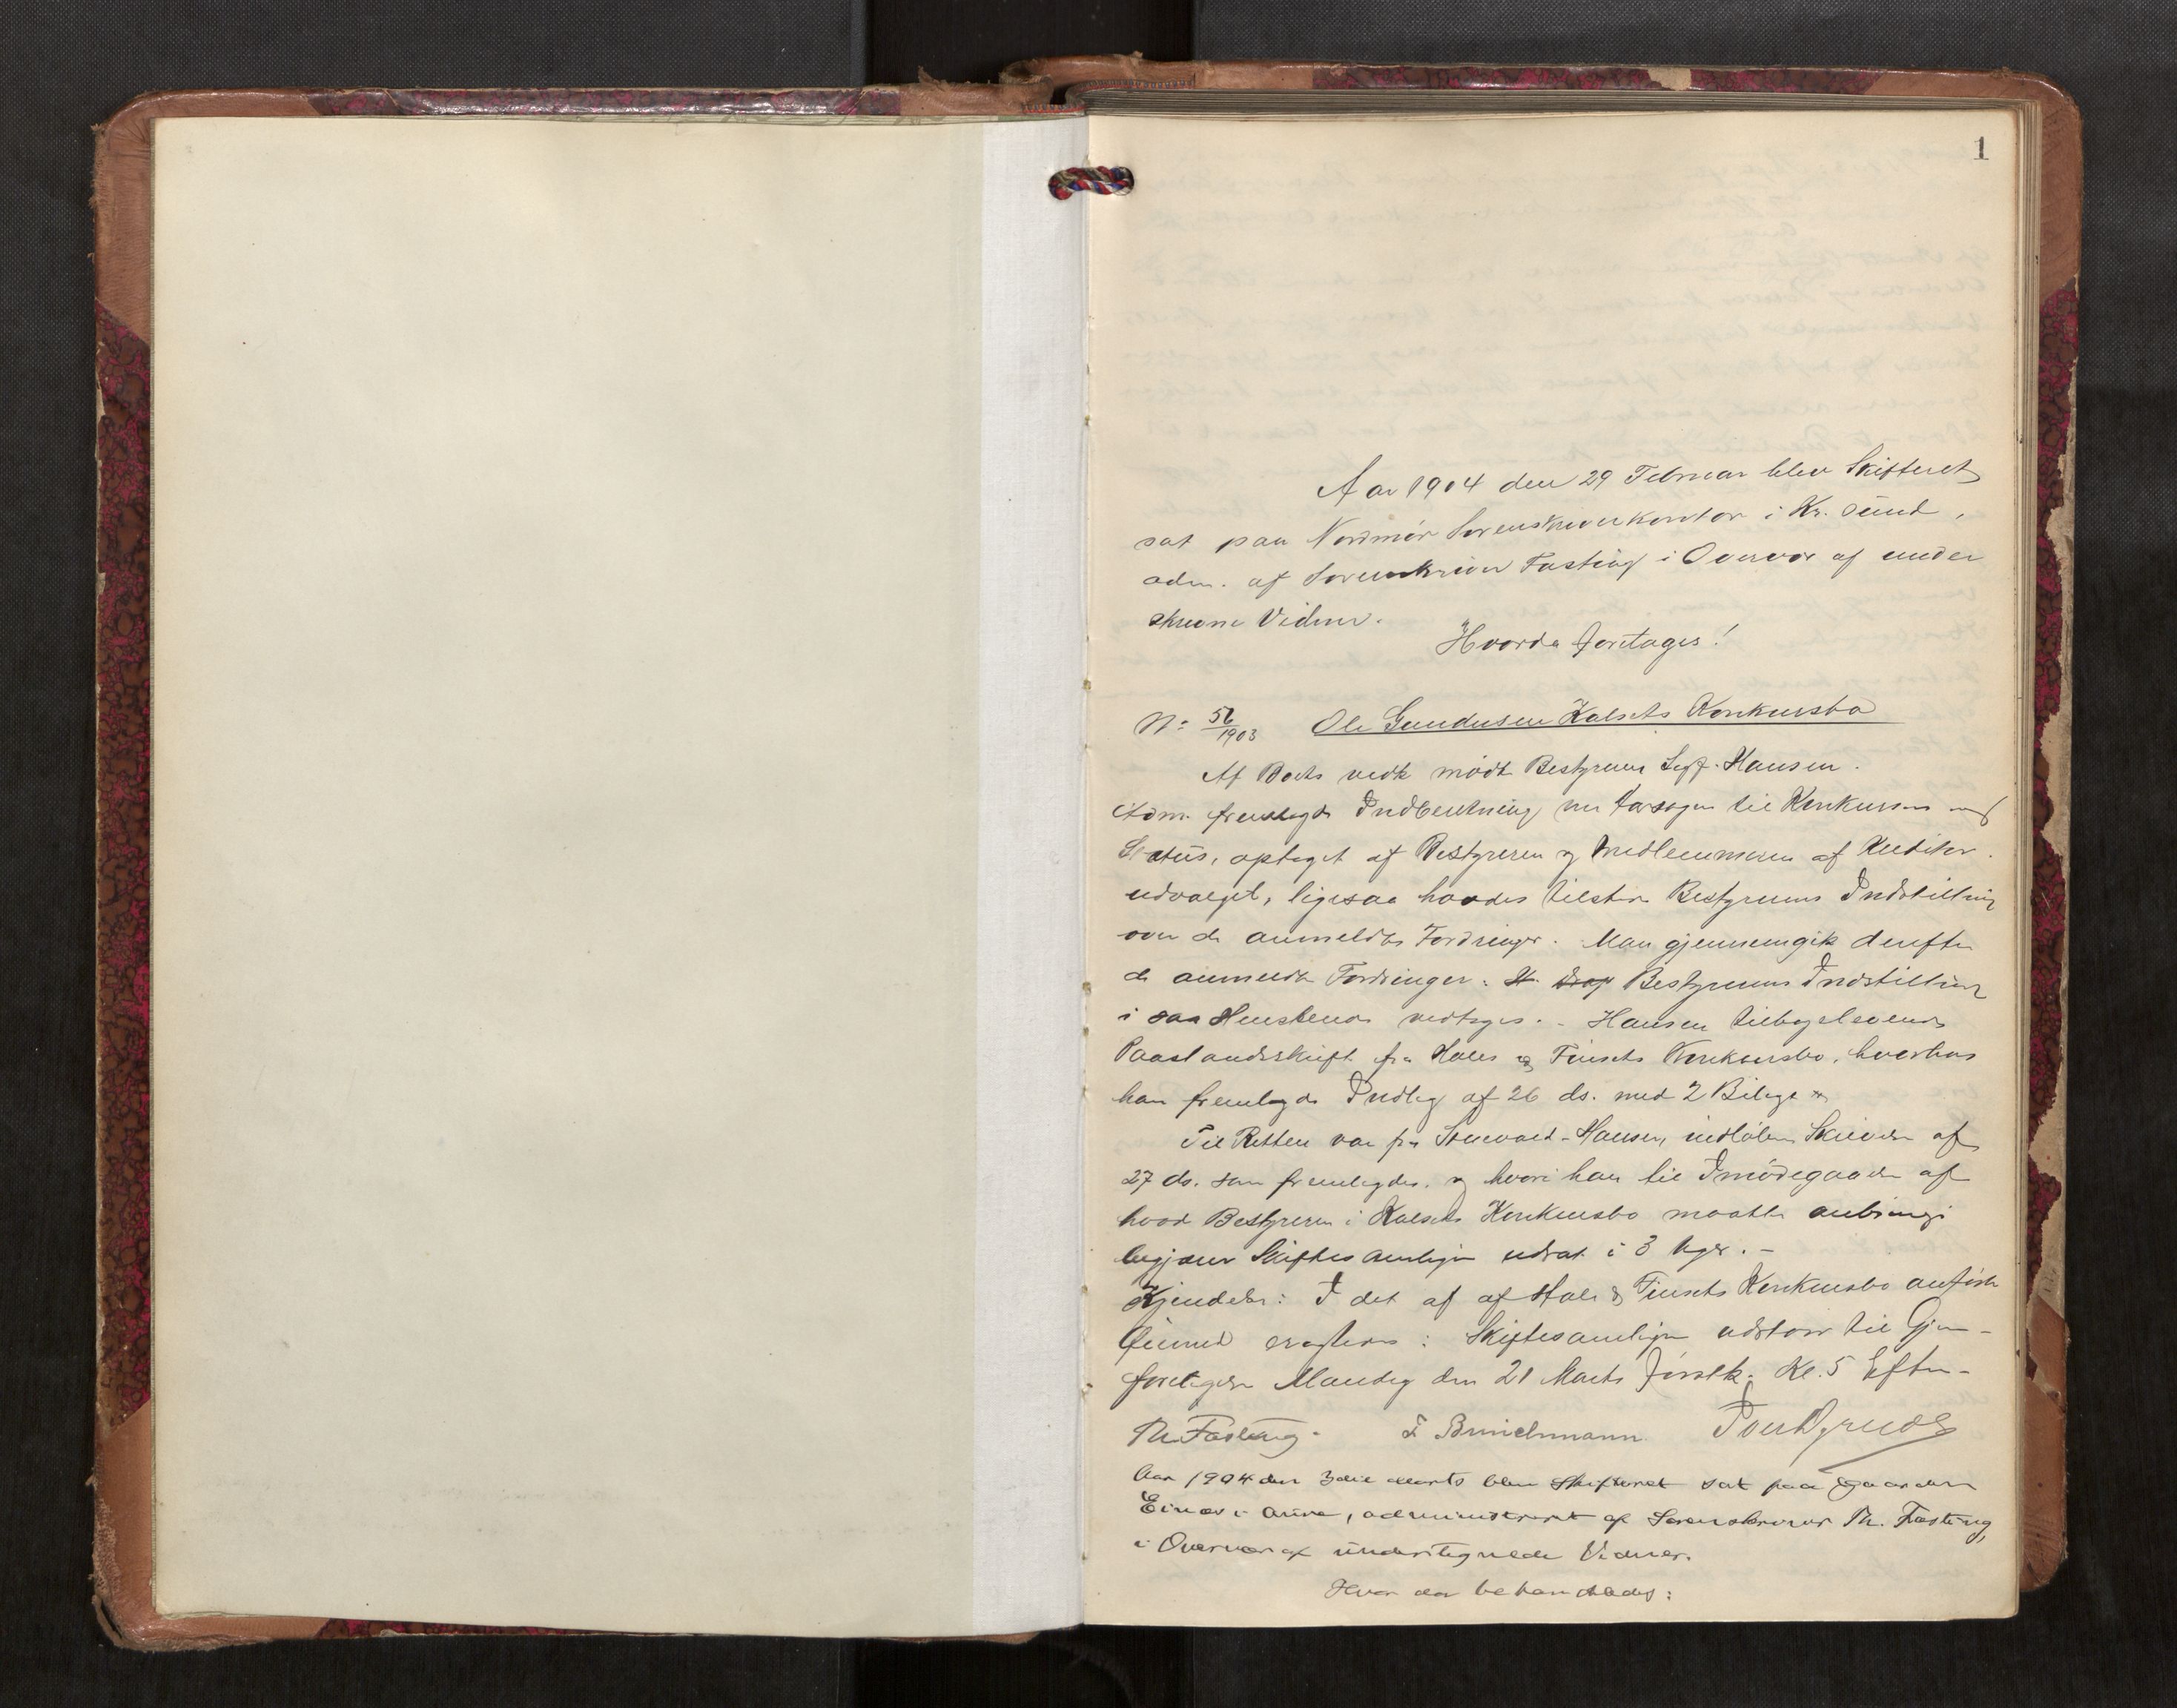 1
Aar 1904 den 29 Februar blev Skifteret
sat paa Nordmør Sorenskriverkontor i Kr. sund,
adm. af Sorenskriver Fasting i Overvær af under
skrevne Vidner.
Hvorda foretages!
No 56/1903 Ole Gundersen Kalsets Konkursbo
Af Boets vedk mødte Bestyreren Sigf. Hansen.
Adm. fremlagde Indberetning om Aarsagen til Konkursen og
Status, optaget af Bestyreren og Medlemmerne af Kreditor
udvalget, ligesaa havdes tilstede Bestyrerens Indstilling
over de anmeldte Fordringer. Man gjennemgik derefter
de anmeldte Fordringer. Bestyrerens Indstilling
i saa Henseende vedtages. - Hansen tilbageleverede
Paastandsskrift fra Hals & Konkursbo, hvorhos
han fremlagde Indlæg af 26 ds. med 2 Bilage
Til Retten var fra Hansen, indløben Skrivelse af
27 ds. som fremlagdes. og hvori han til Imødegaaelse af
hvad Bestyreren i Kalsets Konkursbo maatte anbringe
begjærer Skiftesamlingen udsat i 3 Uger. -
Kjendelse: I det af af Hals & Konkursbo anførte
Øiemed eragtes: Skiftesamlingen udstaar til Gjen-
foretagelse Mandag den 21 Marts førstk. Kl. 5 Efter-
Th. Fasting. F Brinchmann.
Aar 1904 den 3die Marts blev Skifteret sat paa Gaarden
i Aure, administreret af Sorenskriver Th. Fasting,
i Overvær af undertegnede Vidner.
Hvor da behandledes: